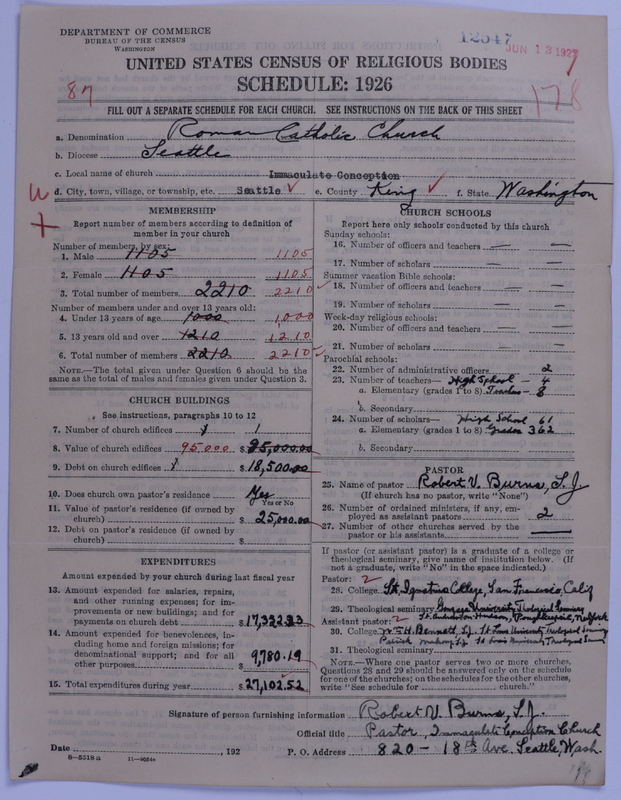 DEPARTMENT OF COMMERCE
BUREAU OF THE CENSUS
WASHINGTON
12547
JUN 13 1927
UNITED STATES CENSUS OF RELIGIOUS BODIES
SCHEDULE: 1926
87
178
FILL OUT A SEPARATE SCHEDULE FOR EACH CHURCH. SEE INSTRUCTIONS ON THE BACK OF THIS SHEET
a. Denomination Roman Catholic Church
b. Diocese Seattle
c. Local name of church Immaculate Conception
d. City, town, village, or township, etc. Seattle e. County King f. State Washington
MEMBERSHIP
Report number of members according to definition of
member in your church
Number of members, by sex:
1. Male 1105 1105
2. Female 1105 1105
3. Total number of members 2210 2210
Number of members under and over 13 years old:
4. Under 13 years of age 1000 1,000
5. 13 years old and over 1210 1210
6. Total number of members 2210 2210
NOTE.—The total given under Question 6 should be the
same as the total of males and females given under Question 3.
CHURCH BUILDINGS
See instructions, paragraphs 10 to 12
7. Number of church edifices 1
8. Value of church edifices 95,000 $95,000.00
9. Debt on church edifices $18,500.00
10. Does church own pastor's residence Yes
Yes or No
11. Value of pastor's residence (if owned by
church) $25,000.00
12. Debt on pastor's residence (if owned by
church) $
EXPENDITURES
Amount expended by your church during last fiscal year
13. Amount expended for salaries, repairs,
and other running expenses; for im-
provements or new buildings; and for
payments on church debt $17,322.33
14. Amount expended for benevolences, in-
cluding home and foreign missions; for
denominational support; and for all
other purposes $9,780.19
15. Total expenditures during year $27,102.52
CHURCH SCHOOLS
Report here only schools conducted by this church
Sunday schools:
16. Number of officers and teachers — —
17. Number of scholars — —
Summer vacation Bible schools:
18. Number of officers and teachers — —
19. Number of scholars — —
Week-day religious schools:
20. Number of officers and teachers — —
21. Number of scholars — —
Parochial schools:
22. Number of administrative officers 2
23. Number of teachers— High School — 4
a. Elementary (grades 1 to 8) Teachers — 8
b. Secondary
24. Number of scholars— High School 61
a. Elementary (grades 1 to 8) Grades 362
b. Secondary
PASTOR
25. Name of pastor Robert V. Burns, S.J.
(If church has no pastor, write "None")
26. Number of ordained ministers, if any, em-
ployed as assistant pastors 2
27. Number of other churches served by the
pastor or his assistants —
If pastor (or assistant pastor) is a graduate of a college or
theological seminary, give name of institution below. (If
not a graduate, write "No" in the space indicated.)
Pastor: 2
28. College St. Ignatius College, San Francisco, Calif
29. Theological seminary Gonzaga University, Theological Seminary
St. Andrew on Hudson, Poughkeepsie, New York
Assistant pastor: 2
30. College Wm H. Bennett, S.J. St Louis University Theological Seminary
Patrick S.J. St Louis University Theological Sem
31. Theological seminary
NOTE.—Where one pastor serves two or more churches,
Questions 28 and 29 should be answered only on the schedule
for one of the churches; on the schedules for the other churches,
write "See schedule for church."
Signature of person furnishing information Robert V. Burns, S.J.
Official title Pastor, Immaculate Conception Church
Date , 192 P. O. Address 820 – 18th Ave. Seattle, Wash.
8—5518 a 11—9054